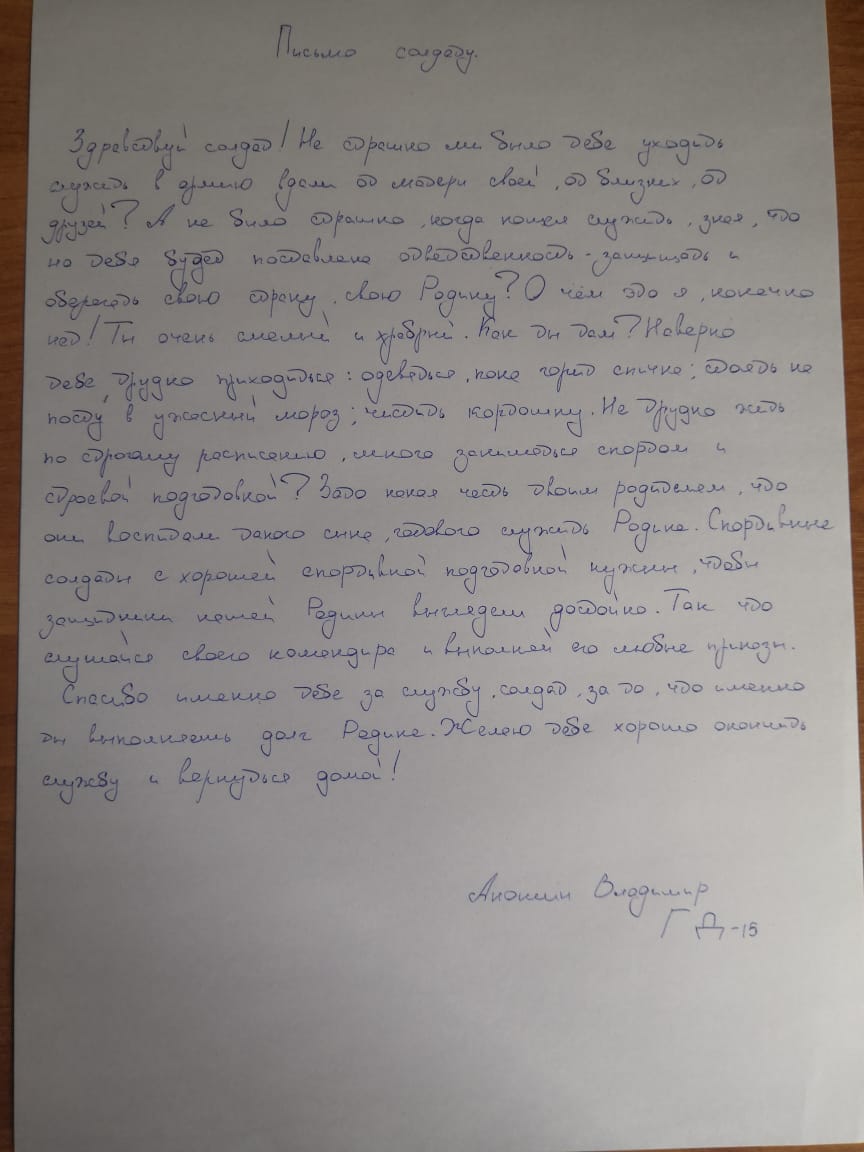 Письмо солдату.
Здравствуй солдат! Не страшно ли было тебе уходить
служить в армию вдали от матери своей, от близких, от
друзей? А не было страшно, когда пошел служить, зная, что
на тебя будет поставлена ответственность - защищать и
оберегать свою страну, свою Родину? О чём это я, конечно
нет! Ты очень смелый и храбрый. Как ты там? Наверно
тебе трудно приходиться: одеваться, пока горит спичка; стоять на
посту в ужасный мороз; чистить картошку. Не трудно жить
по строгому расписанию, много заниматься спортом и
строевой подготовкой? Зато какая честь твоим родителям, что
они воспитали такого сына, готового служить Родине. Спортивные
солдаты с хорошей спортивной подготовкой нужны, чтобы
защитники нашей Родины выглядели достойно. Так что
слушайся своего командира и выполняй его любые приказы.
Спасибо именно тебе за службу, солдат, за то, что именно
ты выполняешь долг Родине. Желаю тебе хорошо окончить
службу и вернуться домой!
Анокин Владимир
ГД-15